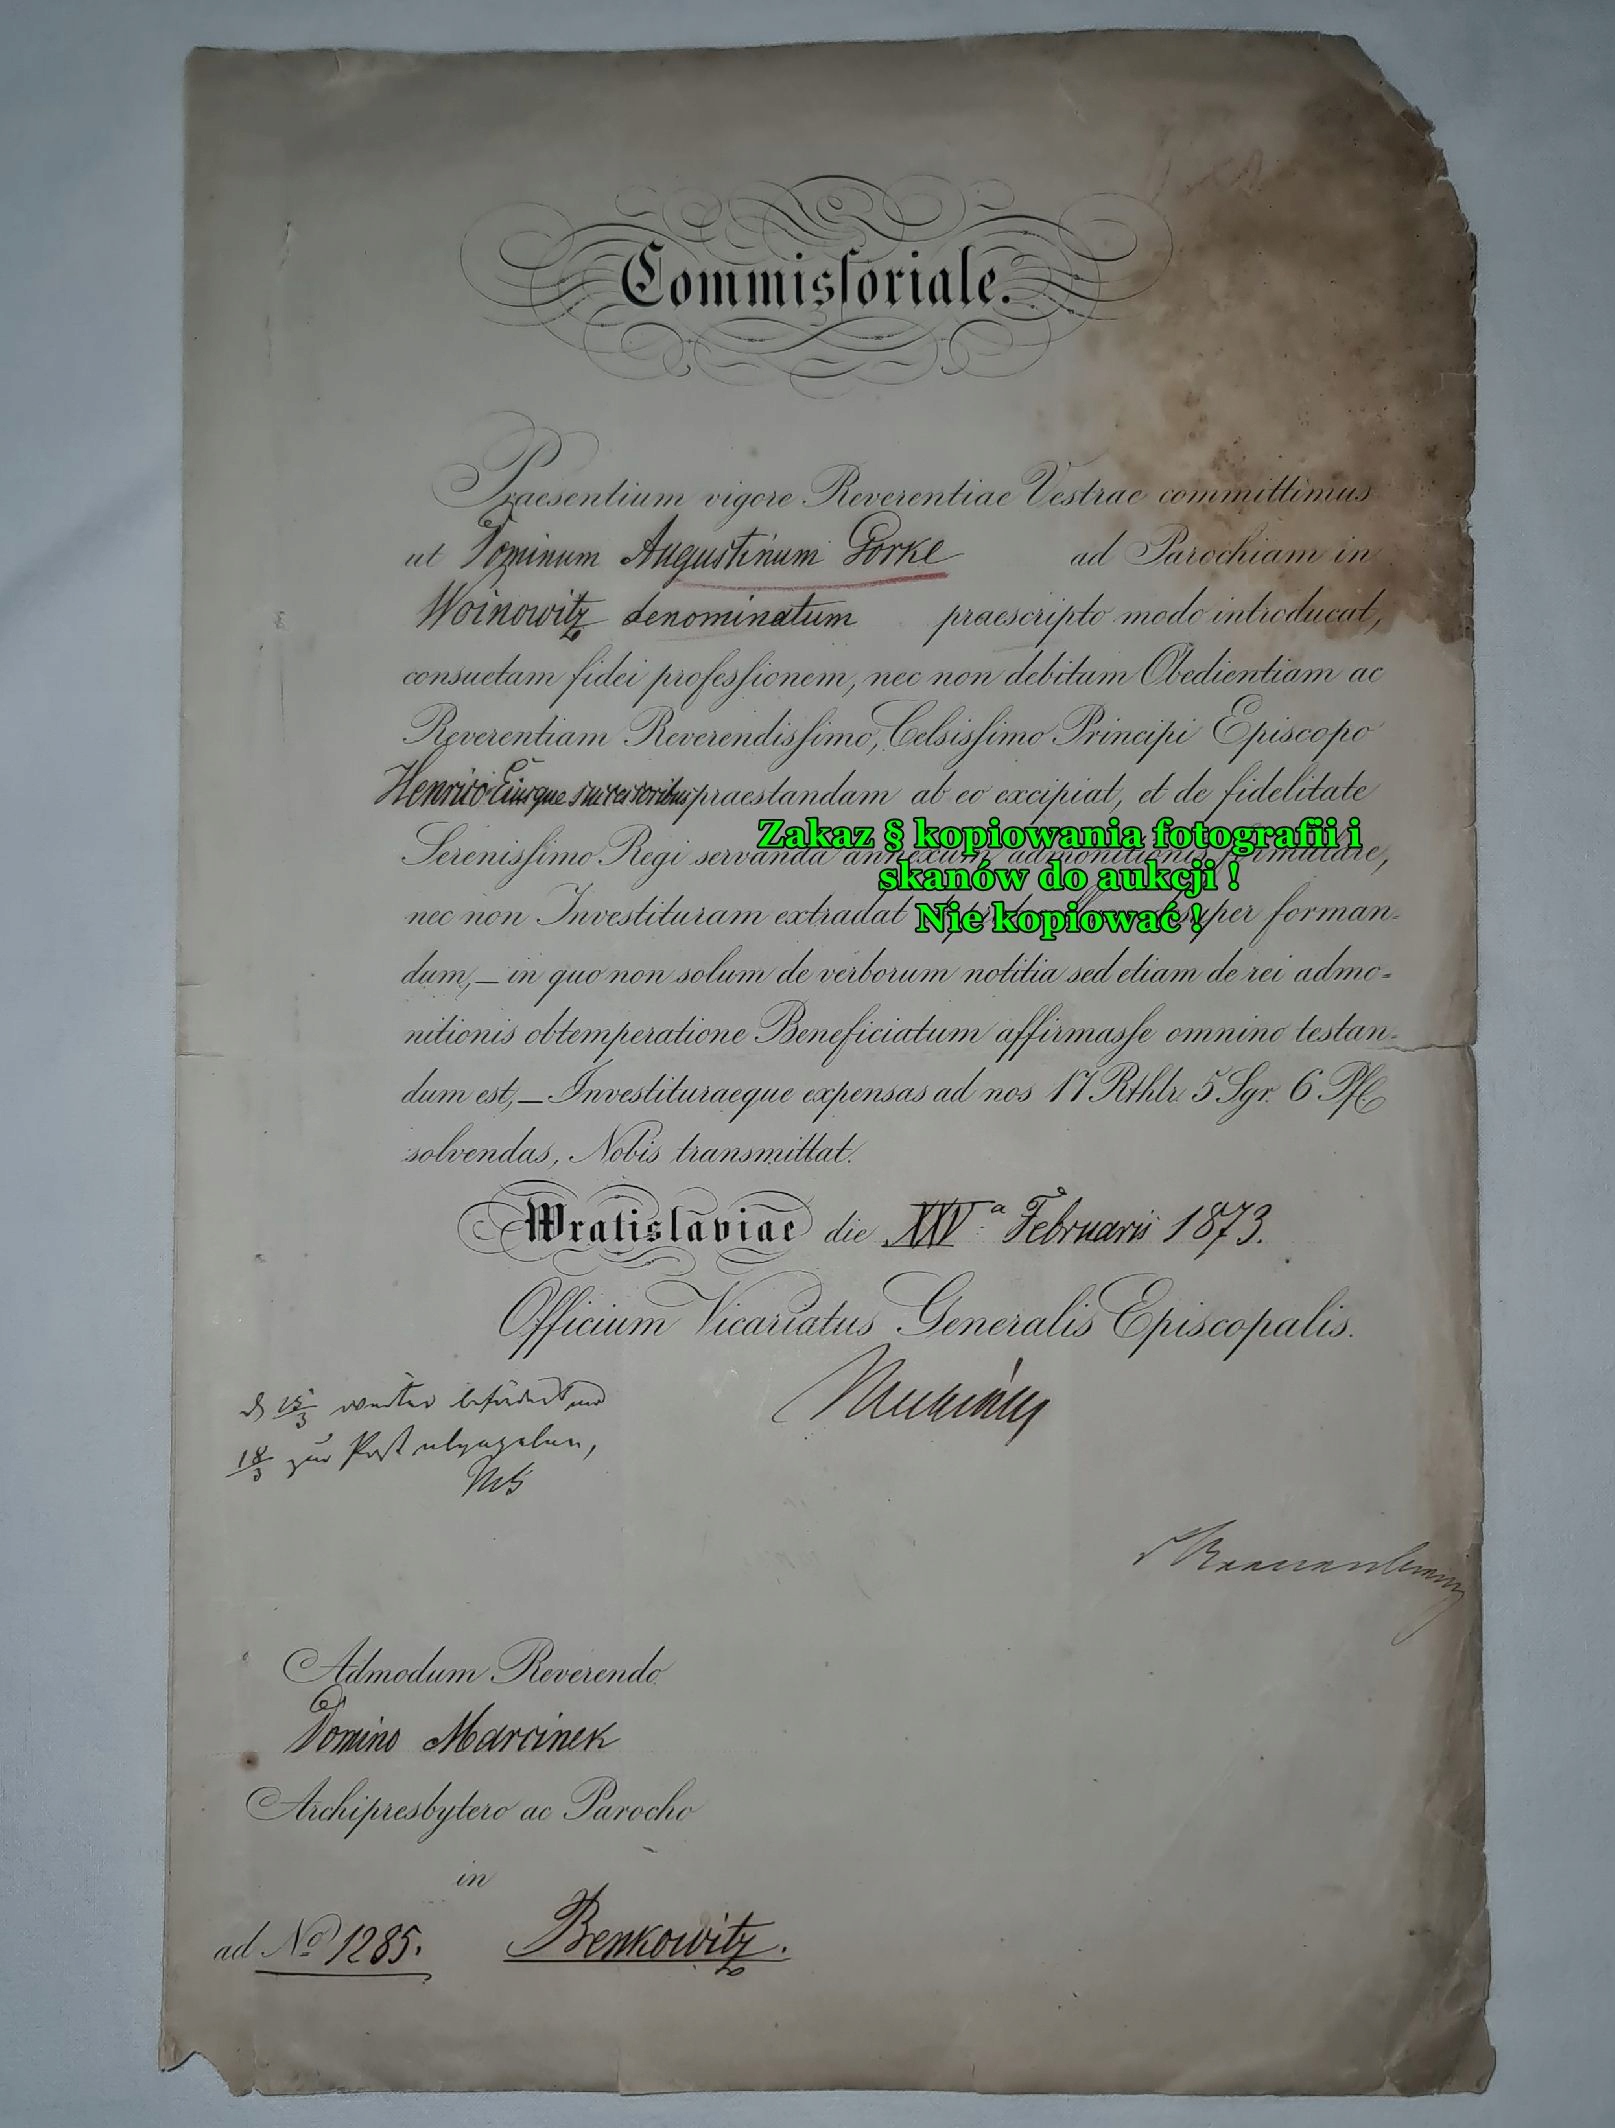 Commissoriale.
Praesentium vigore Reverentiae Vestrae committimus
ut Dominum Augustinum Gorke ad Parochiam in
Woinowitz denominatum praescripto modo introducat,
consuetam fidei professionem, nec non debitam Obedientiam ac
Reverentiam Reverendissimo, Celsissimo Principi Episcopo
Henrico Eiusque successoribus praestandam ab eo excipiat, et de fidelitate
Serenissimo Regi servanda annexum admonitionis formulare,
Zakaz § kopiowania fotografii i
skanów do aukcji !
Nie kopiować !
nec non Investituram extradat super forman-
dum, – in quo non solum de verborum notitia sed etiam de rei admo-
nitionis obtemperatione Beneficiatum affirmasse omnino testan-
dum est, – Investituraeque expensas ad nos 17 Rthlr. 5 Sgr. 6 Pf
solvendas, Nobis transmittat.
Wratislaviae die XXV.a Februarii 1873.
Officium Vicariatus Generalis Episcopalis.
15/3 weiter befördert und
18/3 zur Post abgegeben,
Admodum Reverendo
Domino Marcinek
Archipresbytero ac Parocho
in
ad No 1285. Benkowitz.